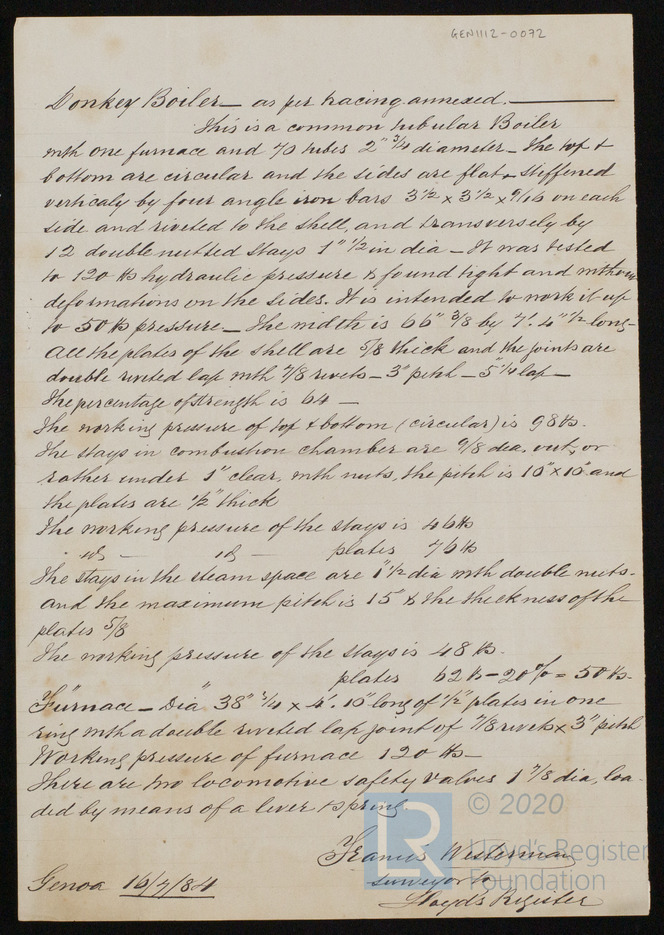 GEN1112-0072
Donkey Boiler — as per tracing annexed. —
This is a common tubular Boiler
with one furnace and 70 tubes 2" 3/4 diameter — The top &
bottom are circular and the sides are flat & stiffened
verticaly by four angle iron bars 3 1/2 x 3 1/2 x 9/16 on each
side and riveted to the shell, and transversely by
12 double nutted stays 1" 1/2 in dia — It was tested
to 120 lbs hydraulic pressure & found tight and without
deformations on the sides. It is intended to work it up
to 50 lbs pressure — The width is 66" 3/8 by 7'. 4" 1/2 long —
All the plates of the shell are 5/8 thick and the joints are
double riveted lap with 7/8 rivets — 3" pitch — 5" 1/4 lap —
The percentage of strength is 64 —
The working pressure of top & bottom (circular) is 98 lbs.
The stays in combustion chamber are 9/8 dia. outs, or
rather under 1" clear, with nuts, the pitch is 10" x 10" and
the plates are 1/2" thick
The working pressure of the stays is 46 lbs
" id — id — plates 76 lbs
The stays in the steam space are 1" 1/2 dia with double nuts -
and the maximum pitch is 15 & the thickness of the
plates 5/8
The working pressure of the stays is 48 lbs.
plates 62 lbs - 20% = 50 lbs.
Furnace — Dia 38" 3/4 x 4'. 10" long of 1/2" plates in one
ring with a double riveted lap joint of 7/8 rivets x 3" pitch
Working pressure of furnace 120 lbs —
There are two locomotive safety valves 1 7/8 dia, loa-
ded by means of a lever & spring.
Francis Westerman
Surveyor to
Lloyd's Register
Genoa 16/4/84
LR
© 2020
Lloyd's Register
Foundation